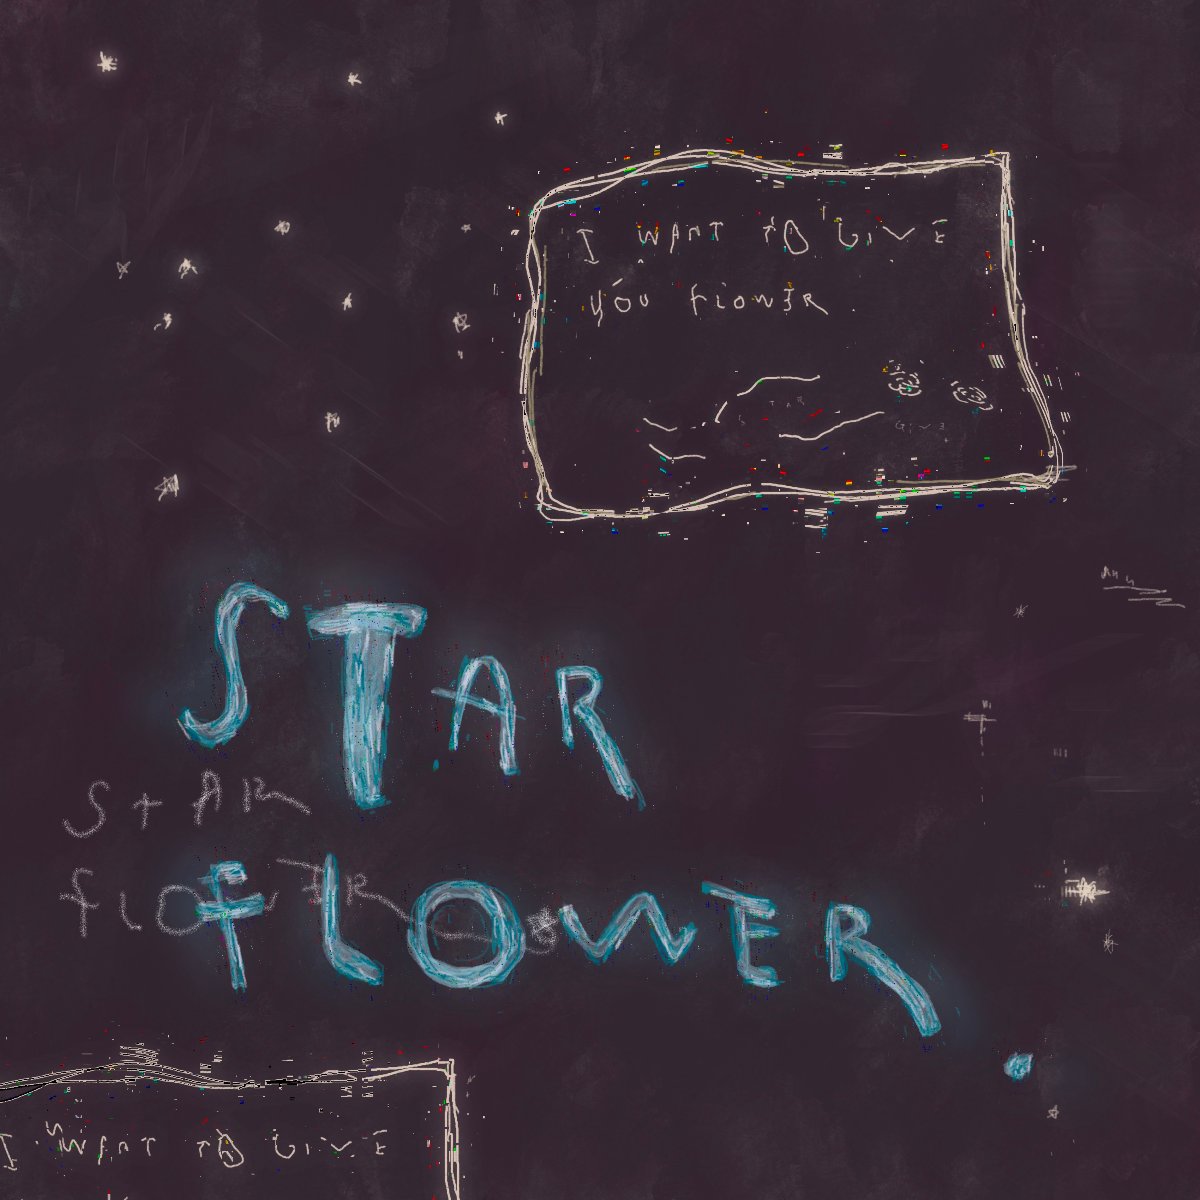 I WANT TO GIVE
YOU FLOWER
STAR
GIVE
STAR
STAR
FLOWER
FLOWER.
I WANT TO GIVE